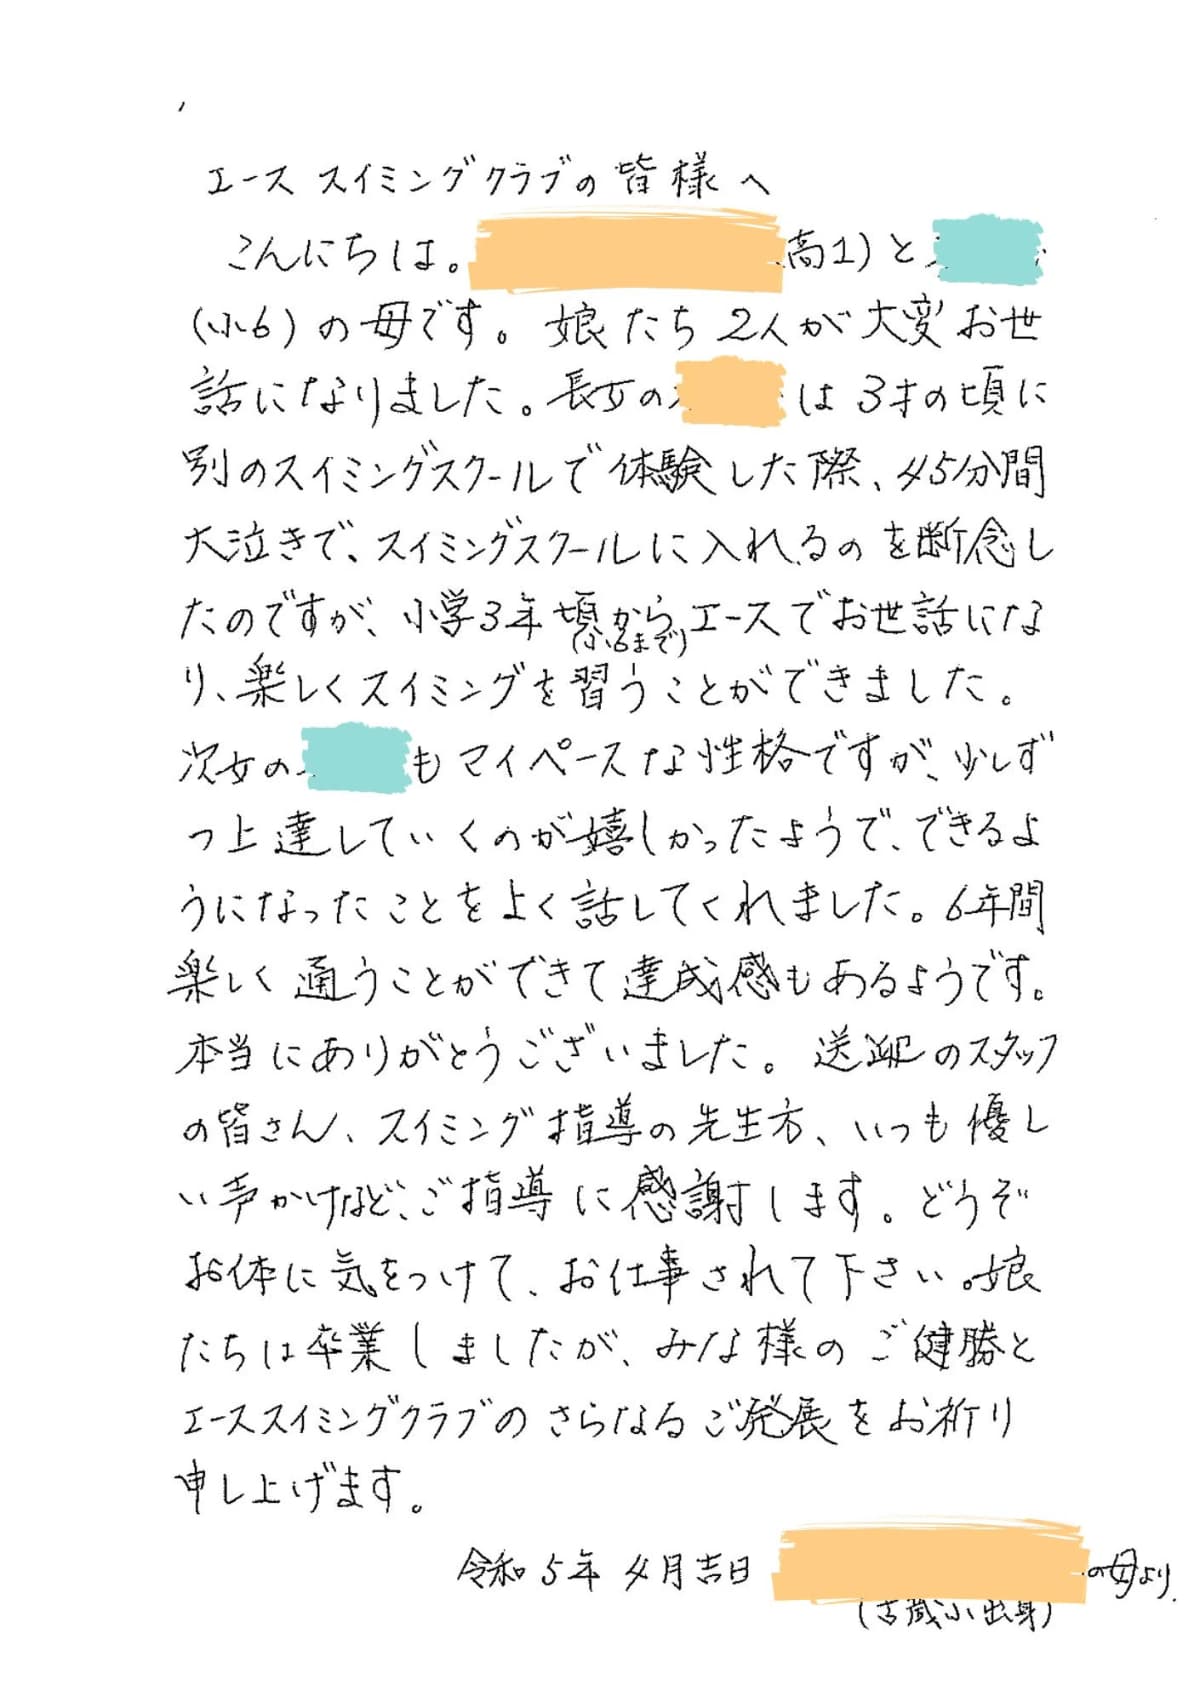 エース スイミングクラブの皆様へ
こんにちは。 高1)と
(小6)の母です。娘たち2人が大変お世
話になりました。長女の は3才の頃に
別のスイミングスクールで体験した際、45分間
大泣きで、スイミングスクールに入れるのを断念し
たのですが、小学3年頃からエースでお世話にな
(小6まで)
り、楽しくスイミングを習うことができました。
次女の もマイペースな性格ですが、少しず
つ上達していくのが嬉しかったようで、できるよ
うになったことをよく話してくれました。6年間
楽しく通うことができて達成感もあるようです。
本当にありがとうございました。送迎のスタッフ
の皆さん、スイミング指導の先生方、いつも優し
い声かけなど、ご指導に感謝します。どうぞ
お体に気をつけて、お仕事されて下さい。娘
たちは卒業しましたが、みな様のご健勝と
エーススイミングクラブのさらなるご発展をお祈り
申し上げます。
令和5年4月吉日 の母より
(古蔵小出身)